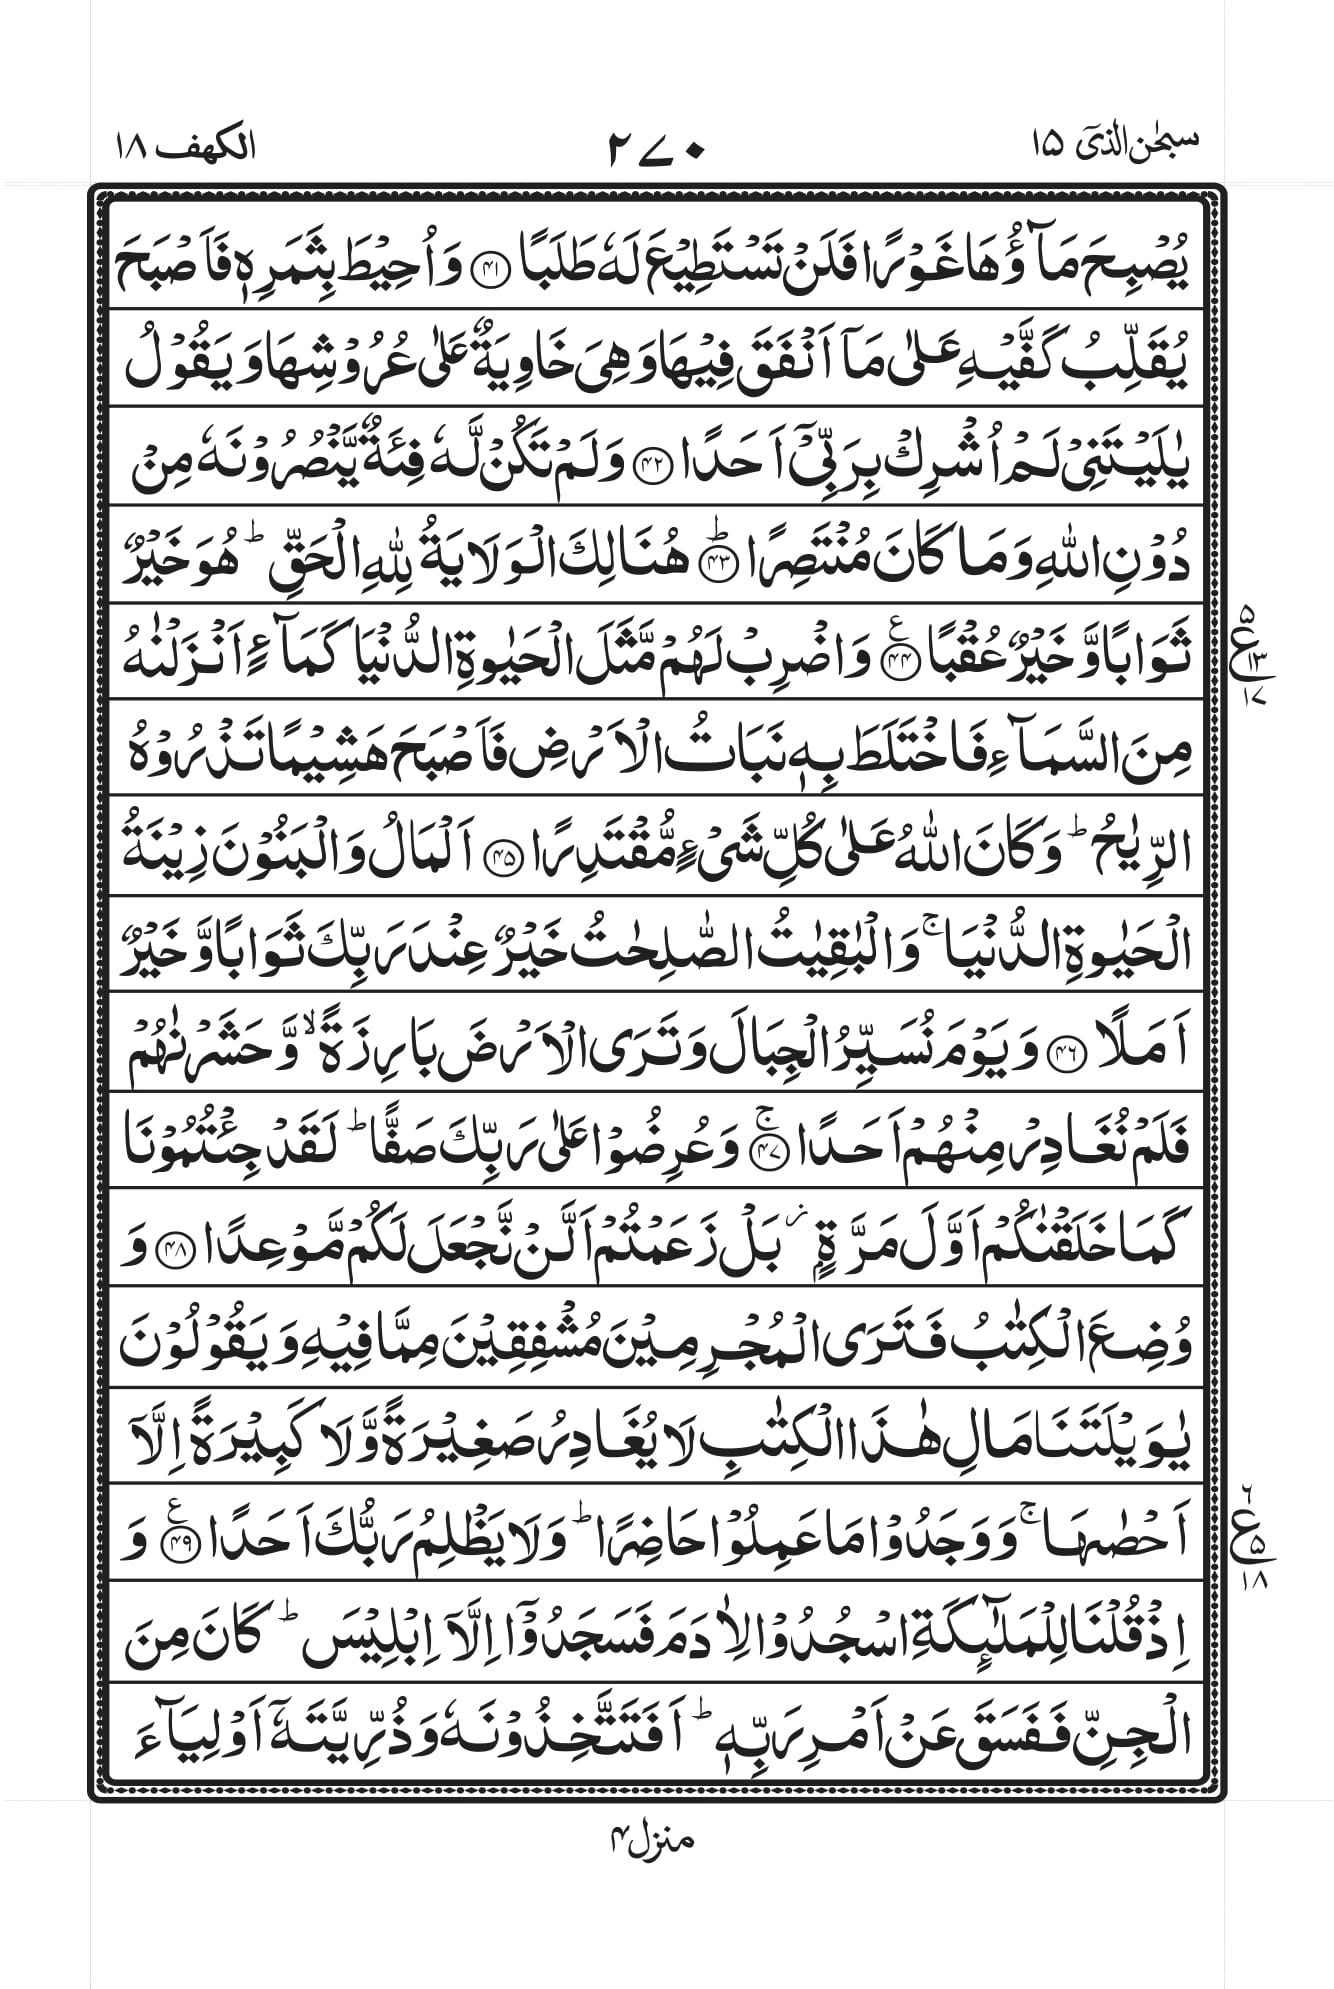 سبحٰن الذیٓ ۱۵
۲۷۰
الکهف ۱۸
يُصْبِحَ مَآؤُهَا غَوْرًا فَلَنْ تَسْتَطِيْعَ لَهٗ طَلَبًا ﴿۴۱﴾ وَاُحِيْطَ بِثَمَرِهٖ فَاَصْبَحَ
يُقَلِّبُ كَفَّيْهِ عَلٰى مَآ اَنْفَقَ فِيْهَا وَهِيَ خَاوِيَةٌ عَلٰى عُرُوْشِهَا وَيَقُوْلُ
يٰلَيْتَنِيْ لَمْ اُشْرِكْ بِرَبِّيْٓ اَحَدًا ﴿۴۲﴾ وَلَمْ تَكُنْ لَّهٗ فِئَةٌ يَّنْصُرُوْنَهٗ مِنْ
دُوْنِ اللّٰهِ وَمَا كَانَ مُنْتَصِرًا ؕ﴿۴۳﴾ هُنَالِكَ الْوَلَايَةُ لِلّٰهِ الْحَقِّ ؕ هُوَ خَيْرٌ
ثَوَابًا وَّخَيْرٌ عُقْبًا ﴿۴۴﴾ ع وَاضْرِبْ لَهُمْ مَّثَلَ الْحَيٰوةِ الدُّنْيَا كَمَآءٍ اَنْزَلْنٰهُ
۵ ع ۱۳ ۱۷
مِنَ السَّمَآءِ فَاخْتَلَطَ بِهٖ نَبَاتُ الْاَرْضِ فَاَصْبَحَ هَشِيْمًا تَذْرُوْهُ
الرِّيٰحُ ؕ وَكَانَ اللّٰهُ عَلٰى كُلِّ شَيْءٍ مُّقْتَدِرًا ﴿۴۵﴾ اَلْمَالُ وَالْبَنُوْنَ زِيْنَةُ
الْحَيٰوةِ الدُّنْيَا ۚ وَالْبٰقِيٰتُ الصّٰلِحٰتُ خَيْرٌ عِنْدَ رَبِّكَ ثَوَابًا وَّخَيْرٌ
اَمَلًا ﴿۴۶﴾ وَيَوْمَ نُسَيِّرُ الْجِبَالَ وَتَرَى الْاَرْضَ بَارِزَةً ۙ وَّحَشَرْنٰهُمْ
فَلَمْ نُغَادِرْ مِنْهُمْ اَحَدًا ۚ﴿۴۷﴾ وَعُرِضُوْا عَلٰى رَبِّكَ صَفًّا ؕ لَقَدْ جِئْتُمُوْنَا
كَمَا خَلَقْنٰكُمْ اَوَّلَ مَرَّةٍۭ ز بَلْ زَعَمْتُمْ اَلَّنْ نَّجْعَلَ لَكُمْ مَّوْعِدًا ﴿۴۸﴾ وَ
وُضِعَ الْكِتٰبُ فَتَرَى الْمُجْرِمِيْنَ مُشْفِقِيْنَ مِمَّا فِيْهِ وَيَقُوْلُوْنَ
يٰوَيْلَتَنَا مَالِ هٰذَا الْكِتٰبِ لَا يُغَادِرُ صَغِيْرَةً وَّلَا كَبِيْرَةً اِلَّآ
اَحْصٰىهَا ۚ وَوَجَدُوْا مَا عَمِلُوْا حَاضِرًا ؕ وَلَا يَظْلِمُ رَبُّكَ اَحَدًا ﴿۴۹﴾ ع وَ
۶ ع ۵ ۱۸
اِذْ قُلْنَا لِلْمَلٰٓئِكَةِ اسْجُدُوْا لِاٰدَمَ فَسَجَدُوْٓا اِلَّآ اِبْلِيْسَ ؕ كَانَ مِنَ
الْجِنِّ فَفَسَقَ عَنْ اَمْرِ رَبِّهٖ ؕ اَفَتَتَّخِذُوْنَهٗ وَذُرِّيَّتَهٗٓ اَوْلِيَآءَ
منزل۴